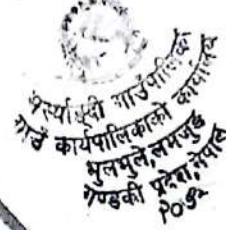 मर्स्याङ्दी गाउँपालिका
गाउँ कार्यपालिकाको कार्यालय
भुलभुले, लमजुङ
गण्डकी प्रदेश, नेपाल
२०७३